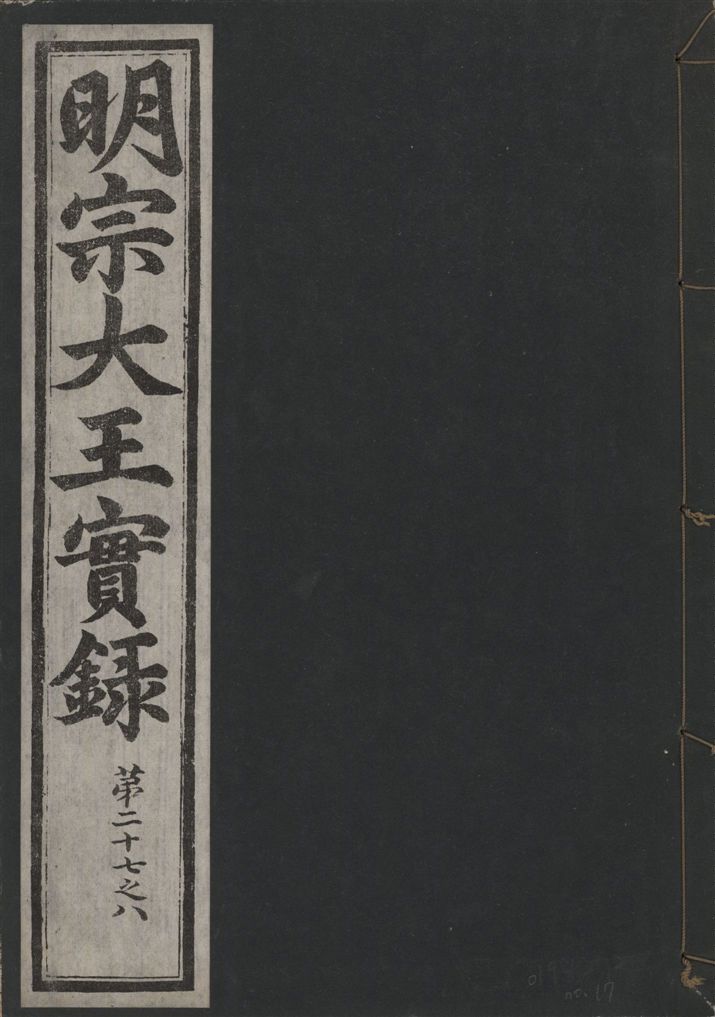 明宗大王實録
苐二十七之八
no. 17